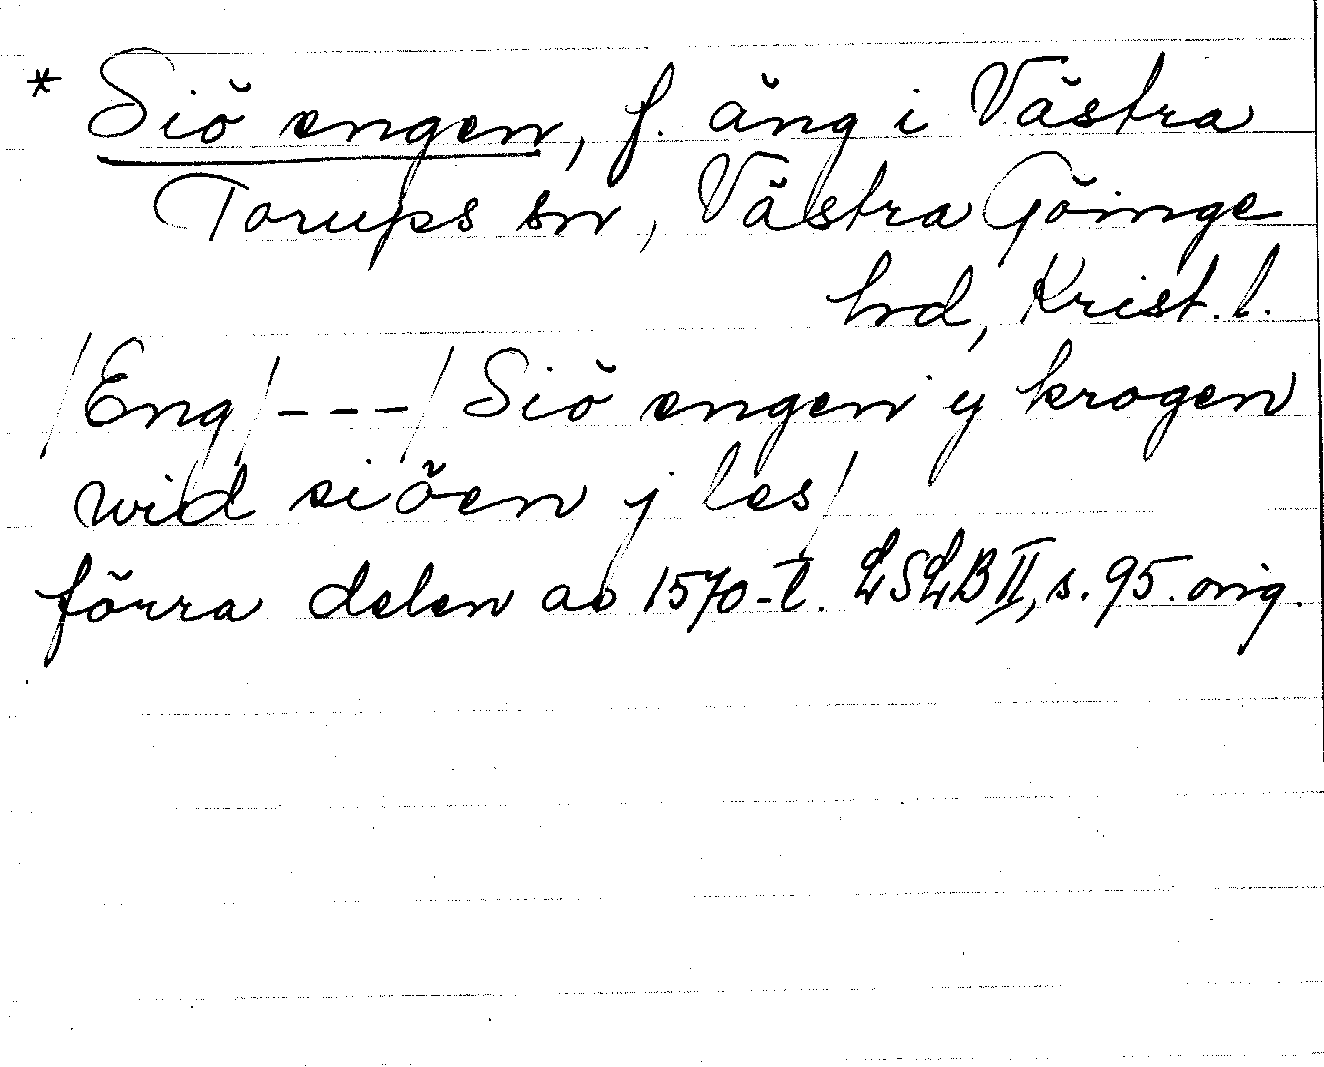 * Siö engen, f. äng i Västra
Torups sn, Västra Göinge
hd, Krist. l.
/Eng/---/Siö engen y krogen
wid siöen j les/
förra delen av 1570-t. LSLB II, s. 95. orig.